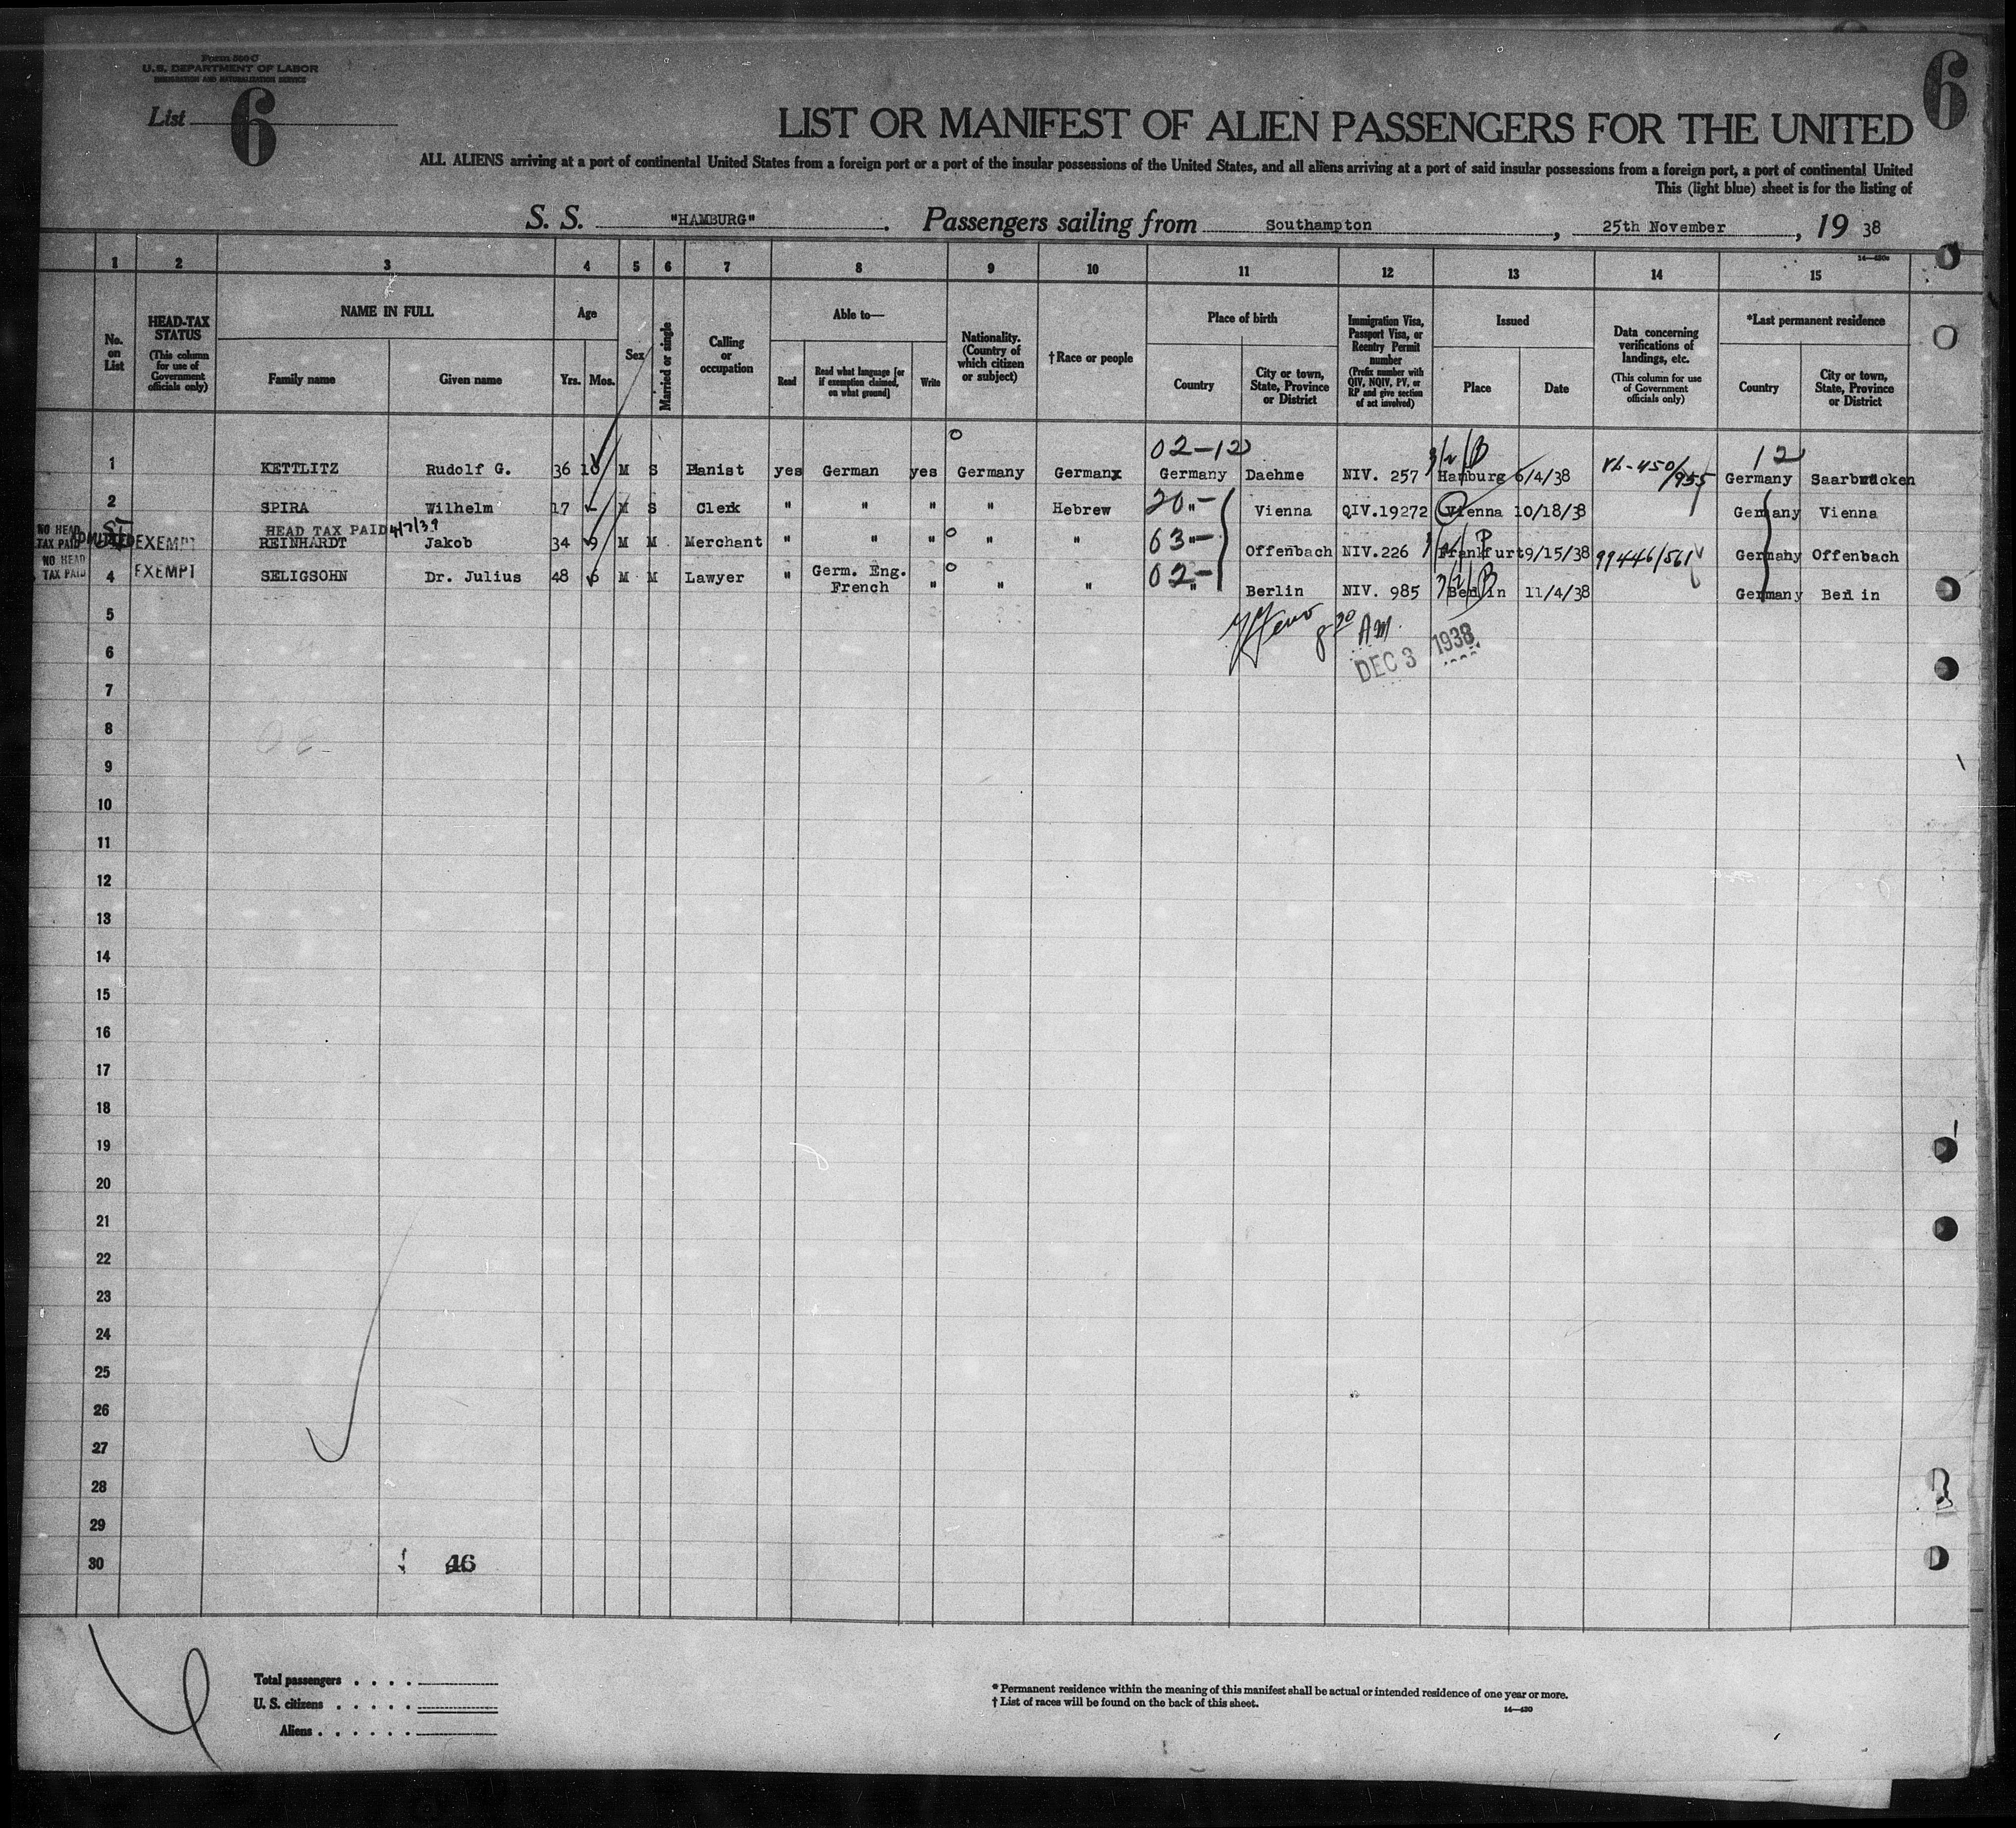 Form 500 C
U. S. DEPARTMENT OF LABOR
IMMIGRATION AND NATURALIZATION SERVICE
List 6
6
LIST OR MANIFEST OF ALIEN PASSENGERS FOR THE UNITED
ALL ALIENS arriving at a port of continental United States from a foreign port or a port of the insular possessions of the United States, and all aliens arriving at a port of said insular possessions from a foreign port, a port of continental United
This (light blue) sheet is for the listing of
S. S. "HAMBURG". Passengers sailing from Southampton, 25th November, 19 38
1 2 3 4 5 6 7 8 9 10 11 12 13 14 15
No. on List
HEAD-TAX STATUS
(This column for use of Government officials only)
NAME IN FULL
Family name
Given name
Age
Yrs. Mos.
Sex
Married or single
Calling or occupation
Able to—
Read
Read what language [or if exemption claimed, on what ground]
Write
Nationality. (Country of which citizen or subject)
†Race or people
Place of birth
Country
City or town, State, Province or District
Immigration Visa, Passport Visa, or Reentry Permit number
(Prefix number with QIV, NQIV, PV, or RP and give section of act involved)
Issued
Place
Date
Data concerning verifications of landings, etc.
(This column for use of Government officials only)
*Last permanent residence
Country
City or town, State, Province or District
02-12 12
1 KETTLITZ Rudolf G. 36 10 M S Pianist yes German yes Germany German Germany Daehme NIV. 257 Hamburg 6/4/38 Germany Saarbrücken
2 SPIRA Wilhelm 17 M S Clerk " " " " Hebrew 20 " - Vienna QIV.19272 Vienna 10/18/38 Germany Vienna
HEAD TAX PAID 4/7/39
NO HEAD TAX PAID ADMITTED EXEMPT REINHARDT Jakob 34 9 M M Merchant " " " " " 63 " - Offenbach NIV.226 Frankfurt 9/15/38 99446/561 Germany Offenbach
NO HEAD TAX PAID 4 EXEMPT SELIGSOHN Dr. Julius 48 6 M M Lawyer " Germ. Eng. French " " " 02 " - Berlin NIV. 985 Berlin 11/4/38 Germany Berlin
5
8 20 AM.
6
DEC 3 1938
7
8
9
10
11
12
13
14
15
16
17
18
19
20
21
22
23
24
25
26
27
28
29
30
46
Total passengers . . . .
U. S. citizens . . . . .
Aliens . . . . . .
* Permanent residence within the meaning of this manifest shall be actual or intended residence of one year or more.
† List of races will be found on the back of this sheet.
14—430